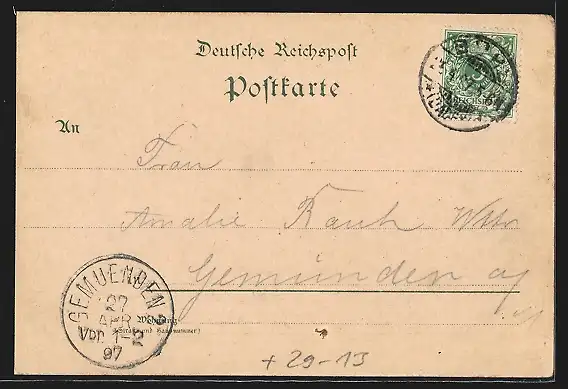 Deutsche Reichspost
Postkarte
An
Frau
Amalie Rauch Wttr
Gemünden a/
Wohnung
(Straße und Hausnummer)
GEMUENDEN
27
APR
Vor. 1-2
97
+ 29-13